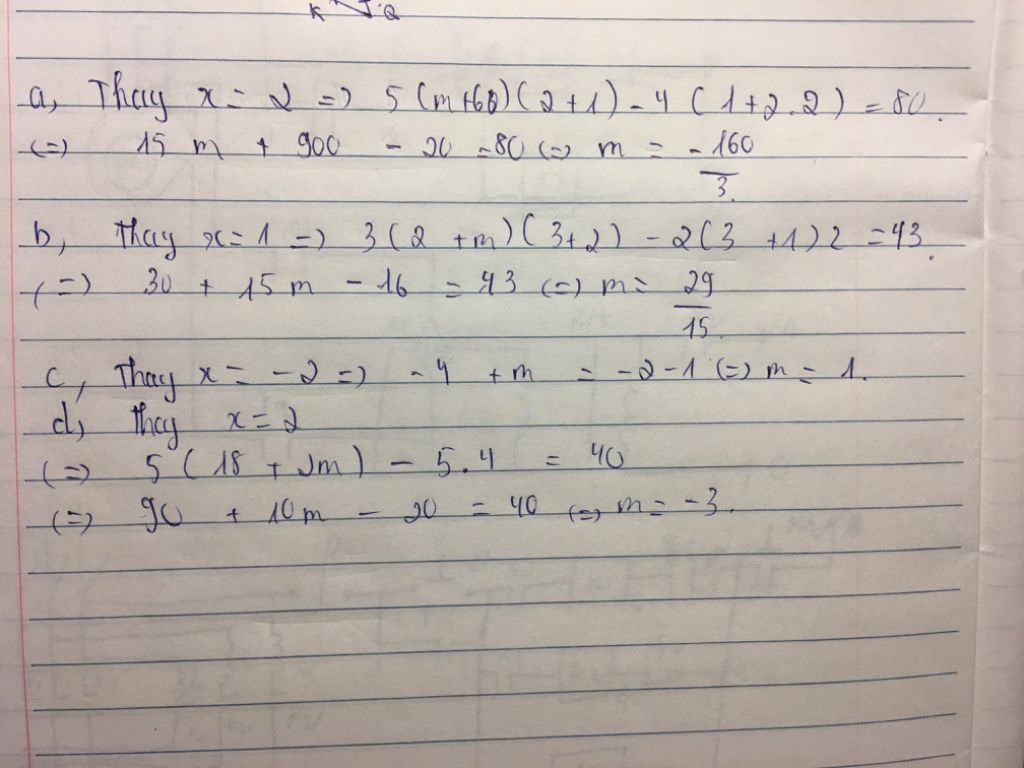 K Q
a, Thay x = 2 => 5 (m+60)(2+1) - 4 (1+2.2) = 80.
(=) 15 m + 900 - 20 = 80 (=) m = -160/3.
b, Thay x = 1 => 3(2 + m)(3+2) - 2(3 + 1)2 = 43.
(=) 30 + 15 m - 16 = 43 (=) m = 29/15.
c, Thay x = -2 => -4 + m = -2 - 1 (=) m = 1.
d, Thay x = 2
(=) 5 (18 + 2m) - 5.4 = 40
(=) 90 + 10m - 20 = 40 (=) m = -3.